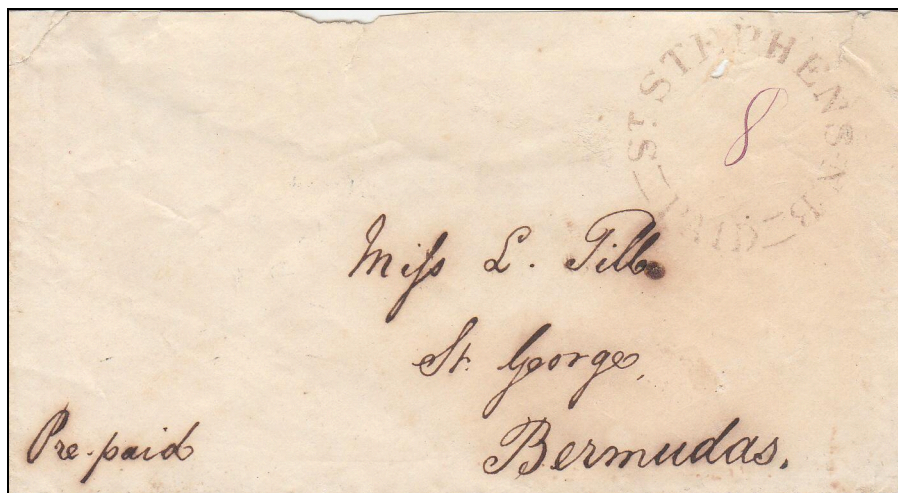 ST. STEPHENS N.B. PAID
8
Miss L. Till
St. George,
Bermudas.
Pre-paid